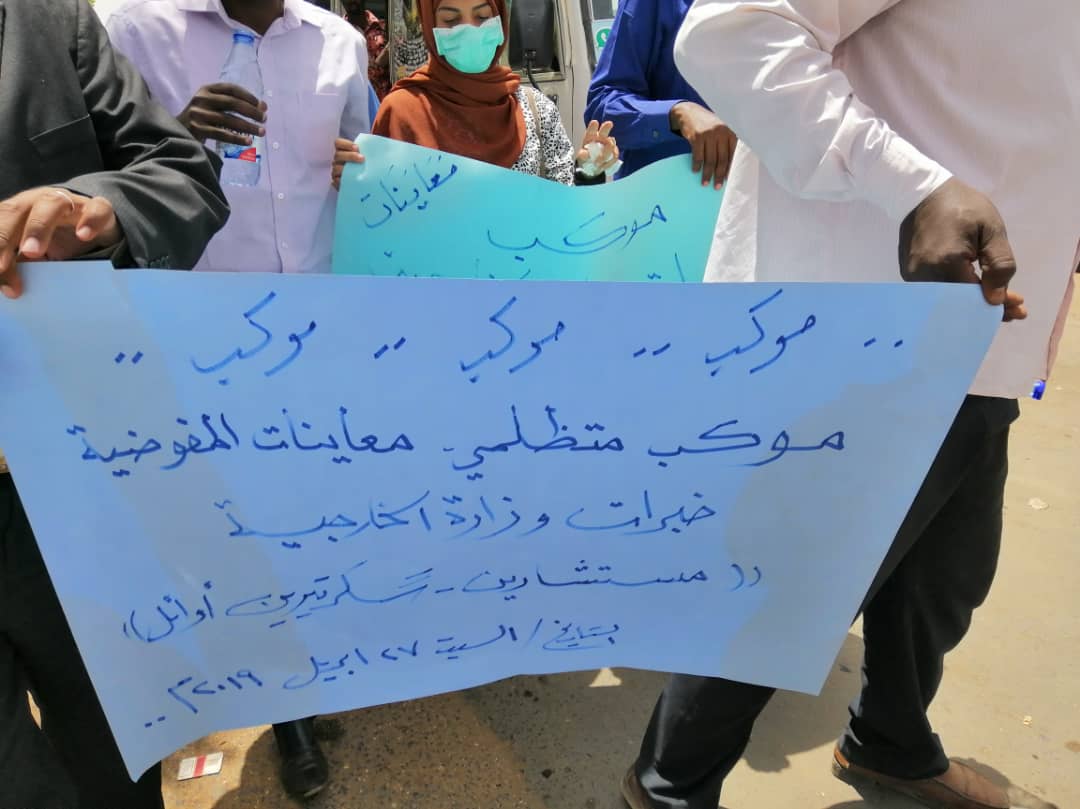 معاينات
موكب
.. موكب .. موكب .. موكب ..
موكب متظلمي معاينات المفوضية
خبرات وزارة الخارجية
(( مستشارين - سكرتيرين أوائل ))
بتاريخ / السبت ٢٧ ابريل ٢٠١٩م ..